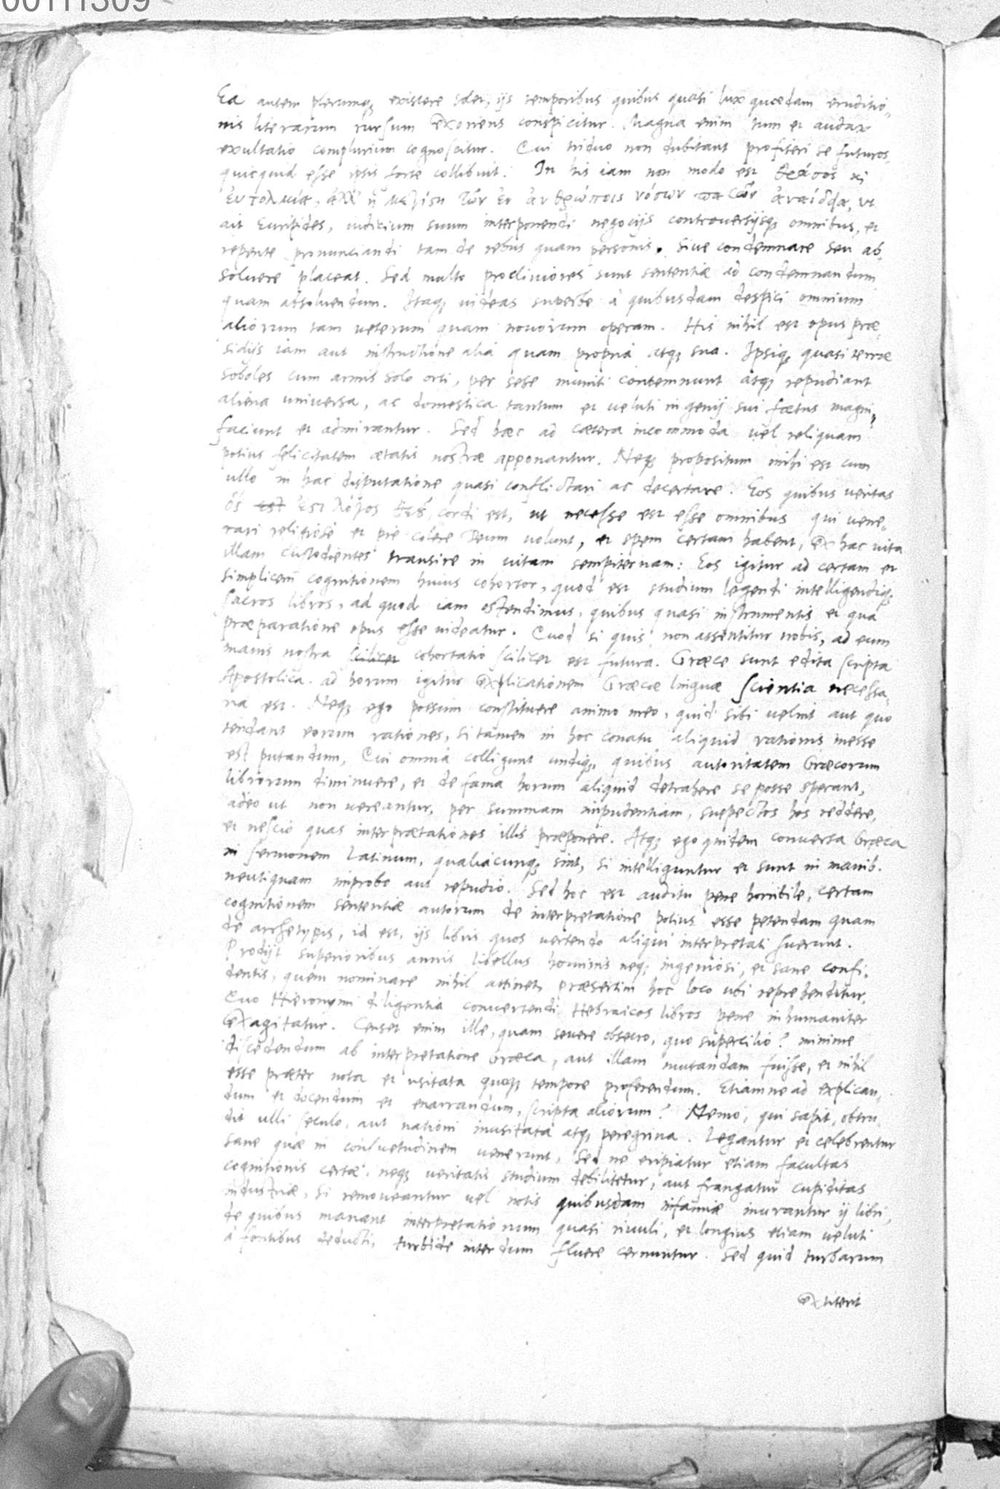 00111309
Ea autem plerumq; existere solet, ijs temporibus quibus quasi lux quædam eruditio,
nis literarum rursum exoriens conspicitur. Magna enim tum et audax
exultatio complurium cognoscitur. Qui triduo non dubitant profiteri se futuros,
quicquid esse ipsis forte collibuit. In his iam non modo est θράσος
εὐτολμία, ἀλλ' ἡ μεγίστη τῶν ἐν ἀνθρώποις νόσων πασῶν ἀναίδεια, ut
ait Euripides, iudicium suum interponendi negocijs controuersijsq; omnibus, et
repente pronunciandi tam de rebus quam personis. siue condemnare seu ab,
soluere placeat. Sed multo procliuiores sunt sententiæ ad condemnandum
quam absoluendum. Itaq; uideas superbe à quibusdam despici omnium
aliorum tam ueterum quam nouorum operam. His nihil est opus præ
sidijs iam aut instructione alia quam propria atq; sua. Ipsiq; quasi terræ
soboles cum armis solo orti, per sese muniti contemnunt atq; repudiant
aliena universa, ac domestica tantum et ueluti ingenij sui fœtus magni,
faciunt et admirantur. Sed hæc ad cætera incommoda uel reliquam
potius felicitatem ætatis nostræ apponantur. Neq; propositum mihi est cum
ullo in hac disputatione quasi conflictari ac decertare. Eos quibus ueritas
ὅς est ἐστὶ λόγος θεοῦ, cordi est, ut necesse est esse omnibus qui uene,
rari religiose et pie colere Deum uolunt, et spem certam habent, ex hac uita
illam custodientes transire in uitam sempiternam: Eos igitur ad certam et
simplicem cognitionem huius cohortor, quod est studium legendi intelligendiq;
sacros libros, ad quod iam ostendimus, quibus quasi instrumentis et qua
præparatione opus esse uideatur. Quod si quis non assentitur nobis, ad eum
inanis nostra scilicet cohortatio scilicet est futura. Græce sunt edita scripta
Apostolica. ad horum igitur explicationem Græcæ linguæ scientia necessa,
ria est. Neq; ego possum constituere animo meo, quid sibi uelint aut quo
tendant eorum rationes, si tamen in hoc conatu aliquid rationis inesse
est putandum, Qui omnia colligunt undiq;, quibus autoritatem Græcorum
librorum diminuere, et de fama horum aliquid detrahere se posse sperant,
adeo ut non uereantur, per summam impudentiam, suspectos hos reddere,
et nescio quas interpretationes illis præponere. Atq; ego quidem conuersa Græca
in sermonem Latinum, qualiacunq; sint, si intelliguntur et sunt in manib.
neutiquam improbo aut repudio. Sed hoc est auditu pene horribile, certam
cognitionem sententiæ autorum de interpretatione potius esse petendam quam
de archetypis, id est, ijs libris quos uertendo aliqui interpretati fuerunt.
Prodijt superioribus annis libellus hominis neq; ingeniosi, et sane confi,
dentis, quem nominare nihil attinet, præsertim hoc loco ubi reprehenditur,
Quo Hieronymi diligentia conuertendi Hebraicos libros pene inhumaniter
exagitatur. Censet enim ille, quam seuere obsecro, quo supercilio? minime
discedendum ab interpretatione Græca, aut illam mutandam fuisse, et nihil
esse præter nota et usitata quoq; tempore proferendum. Etiamne ad explican,
dum et docendum et enarrandum, scripta aliorum? Nemo, qui sapit, obtru,
dit ulli seculo, aut nationi inusitata atq; peregrina. Legantur et celebrentur
sane quæ in consuetudinem uenerunt, Sed ne eripiatur etiam facultas
cognitionis certæ, neq; ueritatis studium debilitetur, aut frangatur cupiditas
industriæ, si remoueantur uel notis quibusdam infamiæ inurantur ij libri,
de quibus manant interpretationum quasi riuuli, et longius etiam ueluti
a fontibus deducti, turbide interdum fluere cernuntur. Sed quid turbarum
extiterit